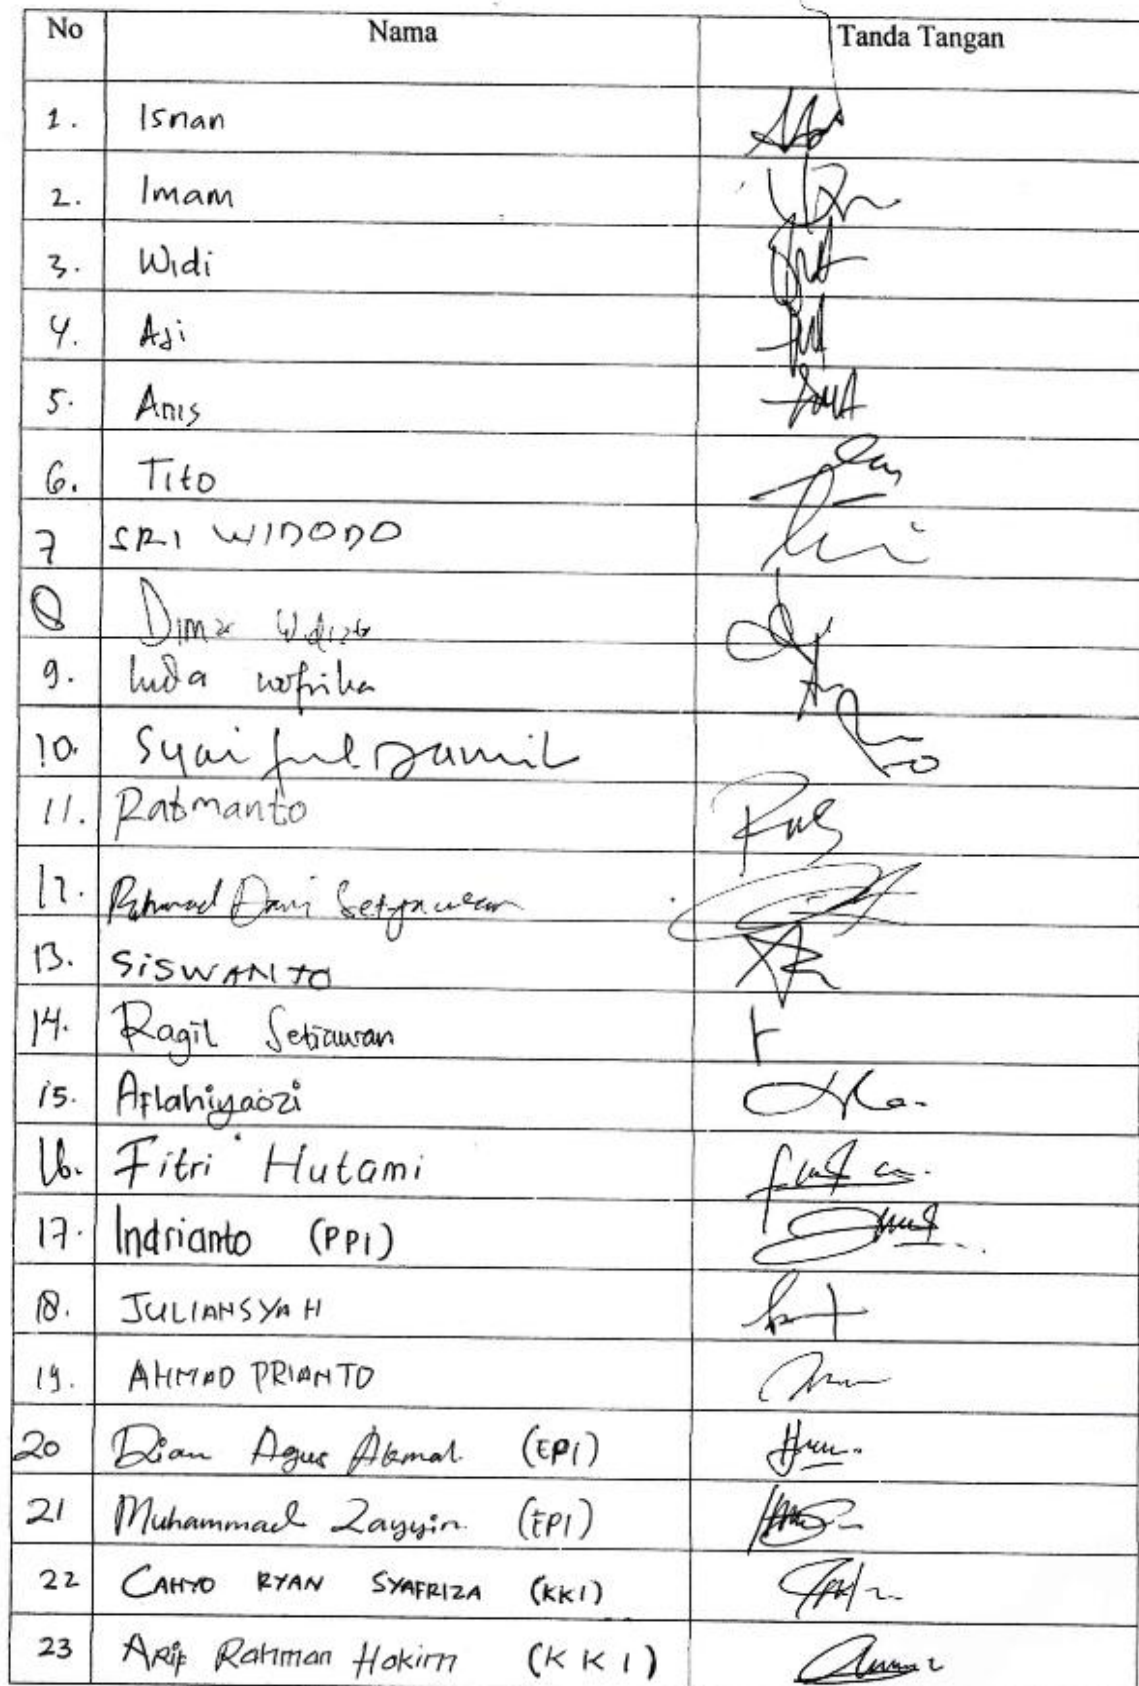 No Nama Tanda Tangan
1. Isnan
2. Imam
3. Widi
4. Aji
5. Anis
6. Tito
7 SRI WIDODO
8 Dimas
9. huda
10. Syaiful Jamil
11. Ratmanto
12. Rahmad Dani Setyawan
13. SISWANTO
14. Ragil Setiawan
15. Aflahiyaozi
16. Fitri Hutami
17. Indrianto (PPI)
18. JULIANSYAH
19. AHMAD PRIANTO
20 Dian Agus Akmal (EPI)
21 Muhammad Zayyin (EPI)
22 CAHYO RYAN SYAFRIZA (KKI)
23 ARif Rahman Hakim (KKI)